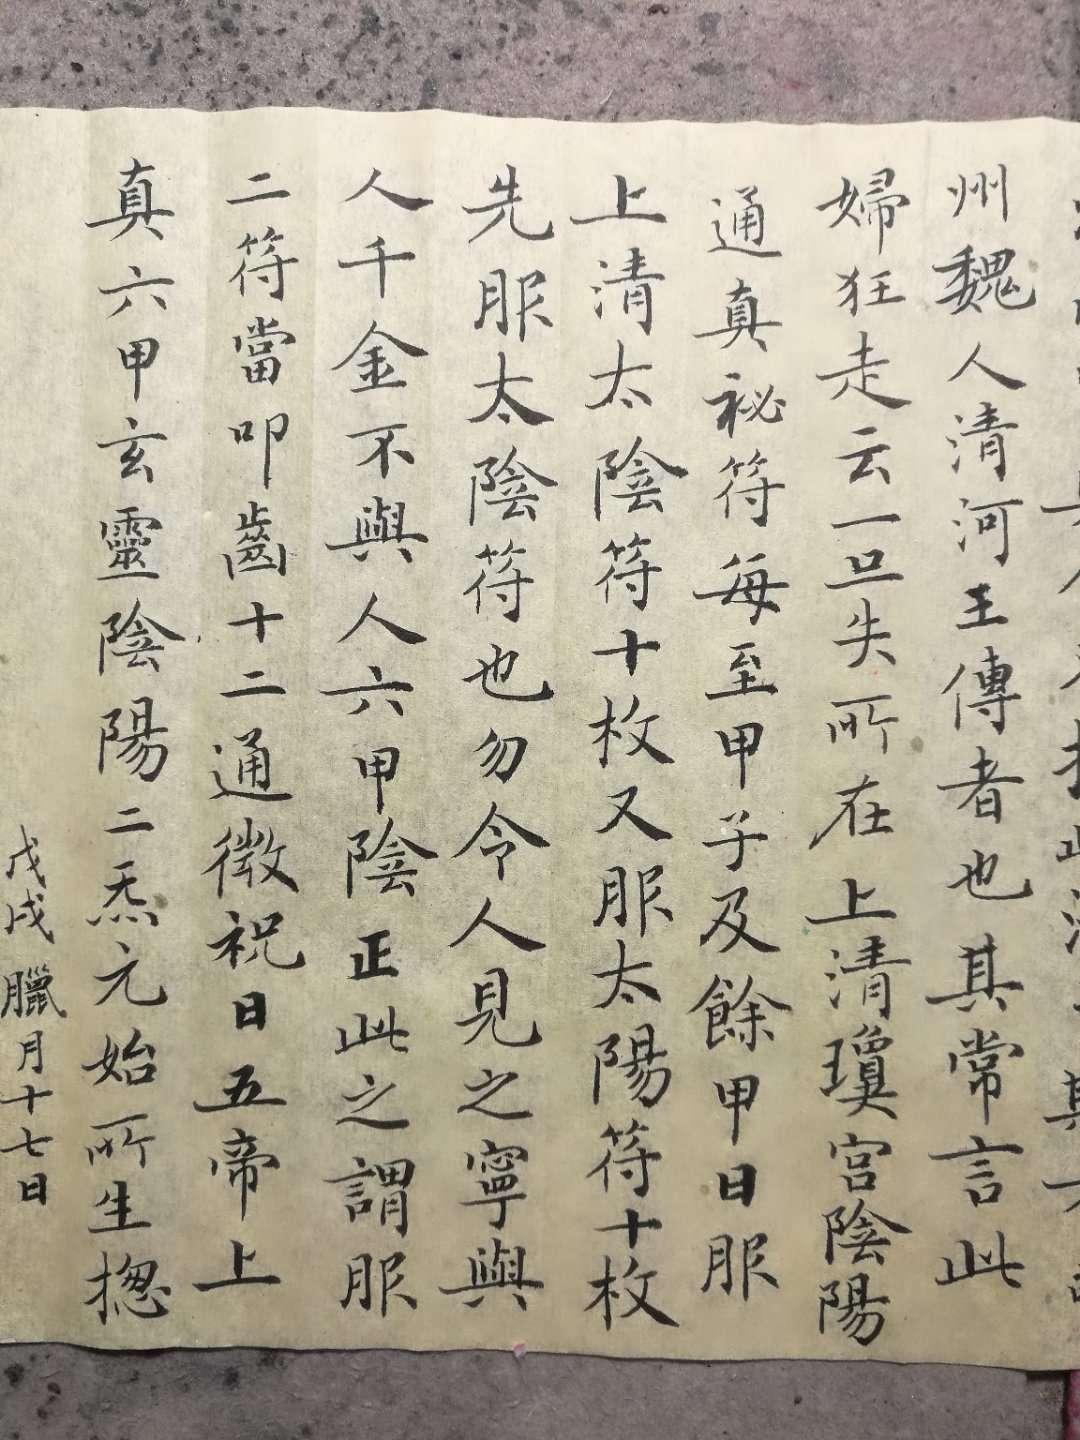 州魏人清河王傳者也其常言此
婦狂走云一旦失所在上清瓊宮陰陽
通真祕符每至甲子及餘甲日服
上清太陰符十枚又服太陽符十枚
先服太陰符也勿令人見之寧與
人千金不與人六甲陰正此之謂服
二符當叩齒十二通微祝曰五帝上
真六甲玄靈陰陽二炁元始所生揔
戊戌臘月十七日